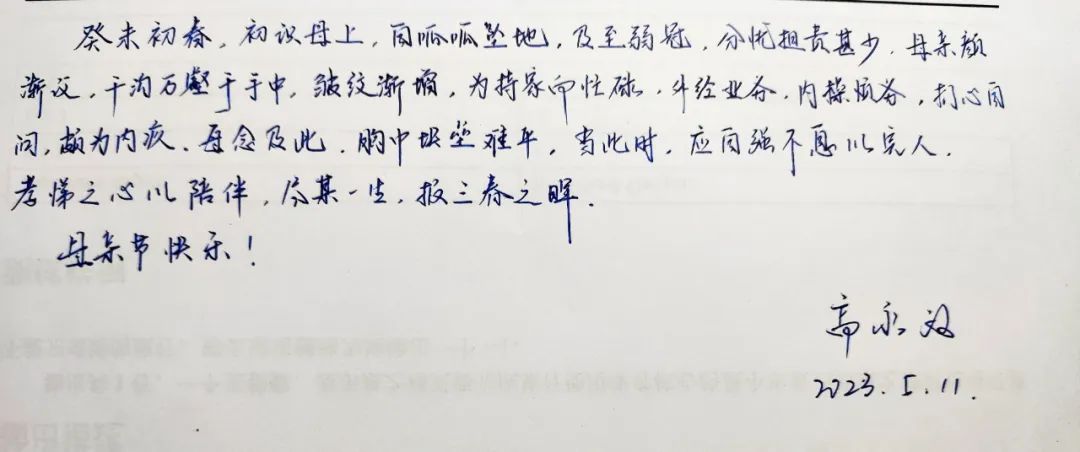 癸未初春，初识母上，自呱呱坠地，及至弱冠，分忧担责甚少，母亲颜
渐议，千沟万壑于手中，皱纹渐增，为持家而忙碌，外经业务，内操烦务，扪心自
问，颇为内疚，每念及此，胸中块垒难平，当此时，应自强不息以完人，
孝悌之心以陪伴，尽某一生，报三春之晖．
母亲节快乐！
高永
2023.5.11.